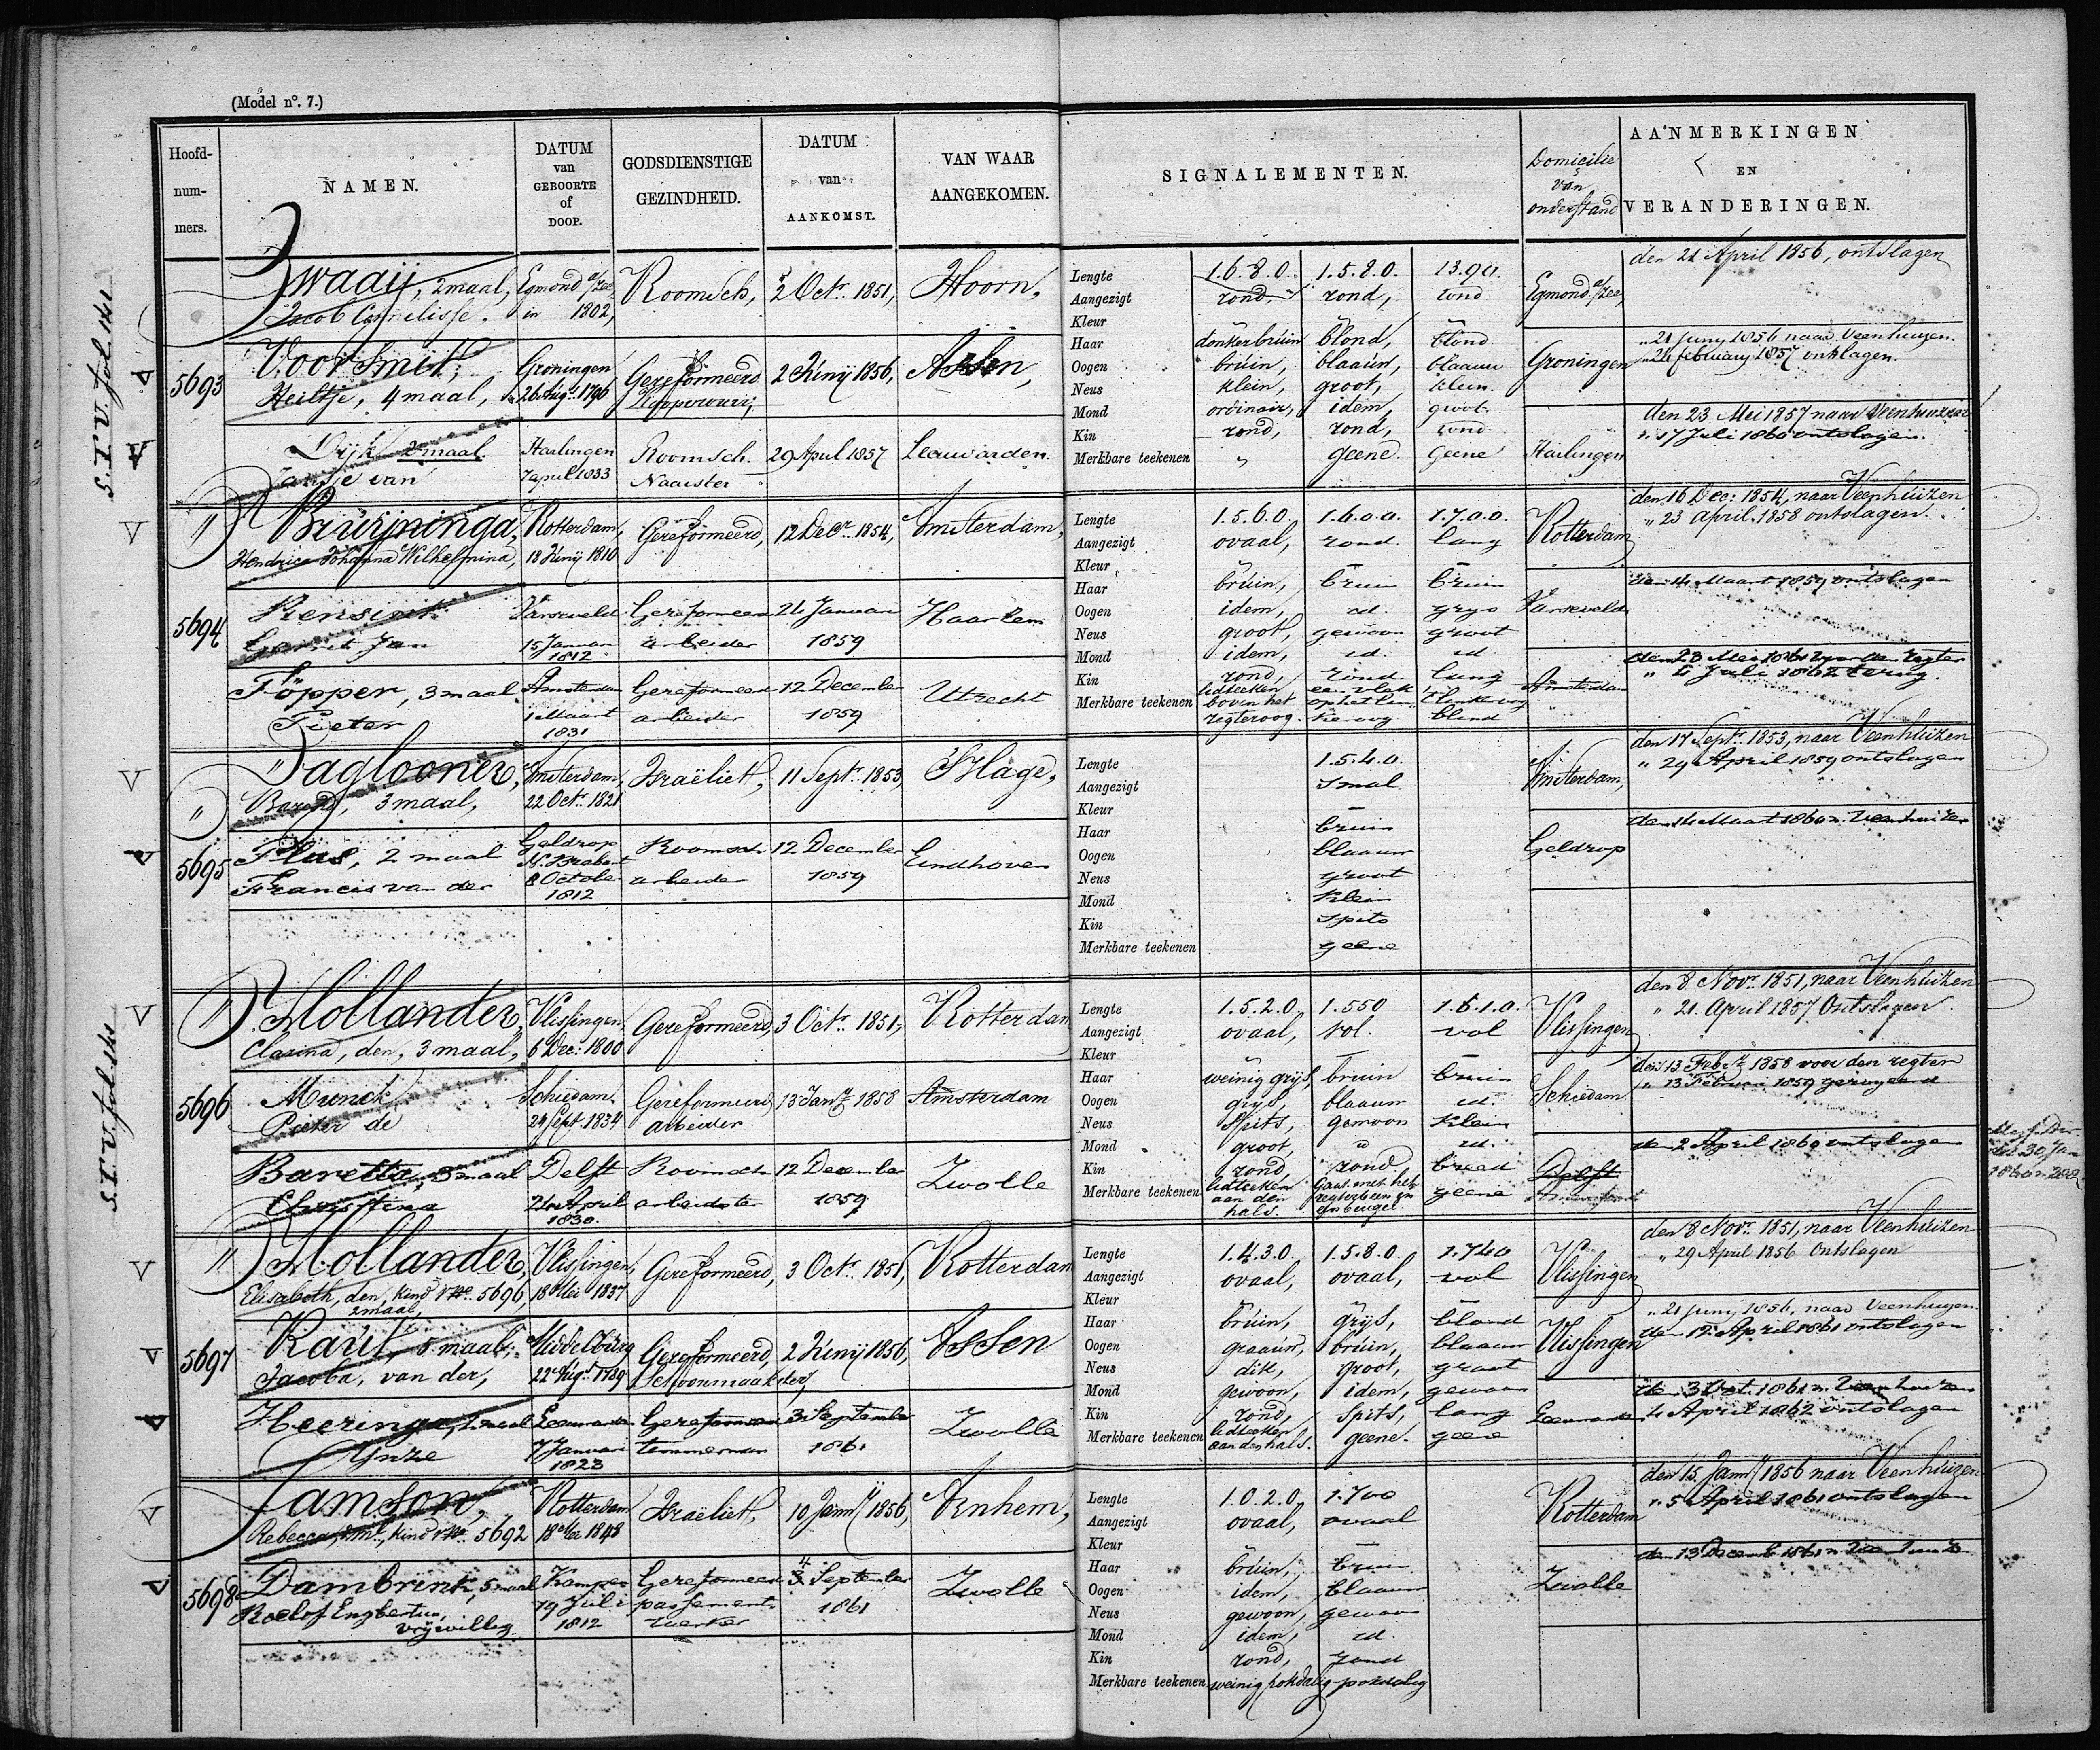 (Model n°. 7.)
Hoofd-
num-
mers.
NAMEN.
DATUM
van
GEBOORTE
of
DOOP.
GODSDIENSTIGE
GEZINDHEID.
DATUM
van
AANKOMST.
VAN WAAR
AANGEKOMEN.
SIGNALEMENTEN.
Domicilie
van
onderstand
AANMERKINGEN
EN
VERANDERINGEN.
S.T.V. fol 141
5693
Zwaaij, 2 maal,
Jacob Cornelisse.
Egmond a/zee
in 1802,
Roomsch,
2 Octr. 1851,
Hoorn,
Egmond a/zee,
den 21 April 1856, ontslagen
Voorsmit,
Heiltje, 4 maal,
Groningen
26 Augt. 1796
Gereformeerd
2 Junij 1856,
Assen,
Groningen
" 21 Juny 1856 naar Veenhuizen.
" 24 february 1857 ontslagen.
Dijk 2 maal
Jantje van
Harlingen
7 april 1833
Roomsch.
Naaister
29 April 1857
Leeuwarden
Harlingen
den 23 Mei 1857 naar Veenhuizen
" 17 Juli 1860 ontslagen.
Lengte 1.6.8.0. 1.5.8.0. 1390.
Aangezigt rond, rond, rond
Kleur
Haar donkerbruin blond, blond
Oogen bruin, blaauw, blaauw
Neus klein, groot, klein
Mond ordinair, idem, groot
Kin rond, rond, rond
Merkbare teekenen " geene. Geene
5694
Bruijninga,
Hendrica Johanna Wilhelmina,
Rotterdam,
18 Junij 1810
Gereformeerd,
12 Decr. 1854,
Amsterdam,
Rotterdam
den 16 Dec: 1854, naar Veenhuizen
" 23 April 1858 ontslagen.
Rensink
Gerrit Jan
Varseveld
15 Januari
1812
Gereformeerd
arbeider
24 Januari
1859
Haarlem
Varseveld
den 14 Maart 1859 ontslagen
Föpper, 3 maal
Pieter
Amsterdam
1 Maart
1831
Gereformeerd
arbeider
12 December
1859
Utrecht
Amsterdam
den 23 Mei 1861 voor den regter
" 2 Juli 1862 terug.
Lengte 1.5.6.0. 1.6.0.0. 1.7.0.0.
Aangezigt ovaal, rond. lang
Kleur
Haar bruin, bruin bruin
Oogen idem, id. grys
Neus groot, gewoon groot
Mond idem, id. id.
Kin rond, rond lang
Merkbare teekenen lidteeken boven het regteroog. een vlak op het linkeroog t linkeroog blind
5695
Daglooner,
Barend, 3 maal,
Amsterdam,
22 Octr. 1821
Israëliet,
11 Septr. 1853,
'S Hage,
Amsterdam,
den 17 Septr. 1853, naar Veenhuizen
" 29 April 1859 ontslagen
Plas, 2 maal
Francis van der
Geldrop
N. Brabant
8 October
1812
Roomsch
arbeider
12 December
1859
Eindhoven
Geldrop
den 14 Maart 1860 n. Veenhuizen
Lengte 1.5.4.0.
Aangezigt smal
Kleur
Haar bruin
Oogen blaauw
Neus groot
Mond klein
Kin spits
Merkbare teekenen geene
S.T.V. fol 144
5696
Hollander,
Clasina, den, 3 maal,
Vlissingen,
6 Dec: 1800
Gereformeerd,
3 Octr. 1851,
Rotterdam
Vlissingen
den 8 Novr. 1851, naar Veenhuizen
" 21 April 1857 Ontslagen
Munck
Pieter de
Schiedam.
24 Sept 1834
Gereformeerd
Arbeider
13 Jany 1858
Amsterdam
Schiedam
den 13 Febry 1858 voor den regter
" 13 Februari 1859
Baretta, 3 maal
Christina
Delft
24 April
1830.
Roomsch
arbeidster
12 December
1859
Zwolle
Delft
den 2 April 1860 ontslagen
Lengte 1.5.2.0. 1.550 1.6.1.0.
Aangezigt ovaal, vol. vol
Kleur
Haar weinig grijs, bruin bruin
Oogen grijs, blaauw id.
Neus spits, gewoon klein
Mond groot, " id.
Kin rond, rond breed
Merkbare teekenen lidteeken aan den hals. Gaat met het regterbeen in een beugel. geene
5697
Hollander,
Elisabeth, den, kind No. 5696,
2 maal,
Vlissingen,
18 Mei 1837
Gereformeerd,
3 Octr. 1851,
Rotterdam
Vlissingen
den 8 Novr. 1851, naar Veenhuizen
" 29 April 1856 Ontslagen
Raut, 5 maal,
Jacoba, van der,
Middelburg
22 Augt. 1789
Gereformeerd,
Schoonmaakster,
2 Junij 1856,
Assen
Vlissingen
" 21 Juny 1856, naar Veenhuizen
den 12 April 1861 ontslagen
Heeringa, 2 maal
Leeuwarden
7 Januari
1823
Gereformeerd
timmerman
3 September
1861
Zwolle
Leeuwarden
den 3 Oct. 1861 n. Veenhuizen
4 April 1862 ontslagen
Lengte 1.4.3.0. 1.5.8.0. 1.740
Aangezigt ovaal, ovaal, vol
Kleur
Haar bruin, grijs, blond
Oogen graauw, bruin, blaauw
Neus dik, groot, groot
Mond gewoon, idem, gewoon
Kin rond, spits, lang
Merkbare teekenen lidteeken aan den hals. geene. geene
5698
Samson,
Rebecca, kind No. 5692
Rotterdam
18 1848
Israëliet,
10 Janny 1856,
Arnhem,
Rotterdam
den 15 Janny 1856 naar Veenhuizen
" 5 April 1861 ontslagen
Dambrink, 5 maal
Roelof Engbertus,
vrijwillig
Kampen
19 Juli
1812
Gereformeerd
passement
werker
4 September
1861
Zwolle
Zwolle
den 13 Decemb 1861 n. Veenhuizen
Lengte 1.0.2.0. 1.700
Aangezigt ovaal, ovaal
Kleur
Haar bruin, bruin
Oogen idem, blaauw
Neus gewoon, gewoon
Mond idem, id.
Kin rond, rond
Merkbare teekenen weinig pokdalig pokdalig